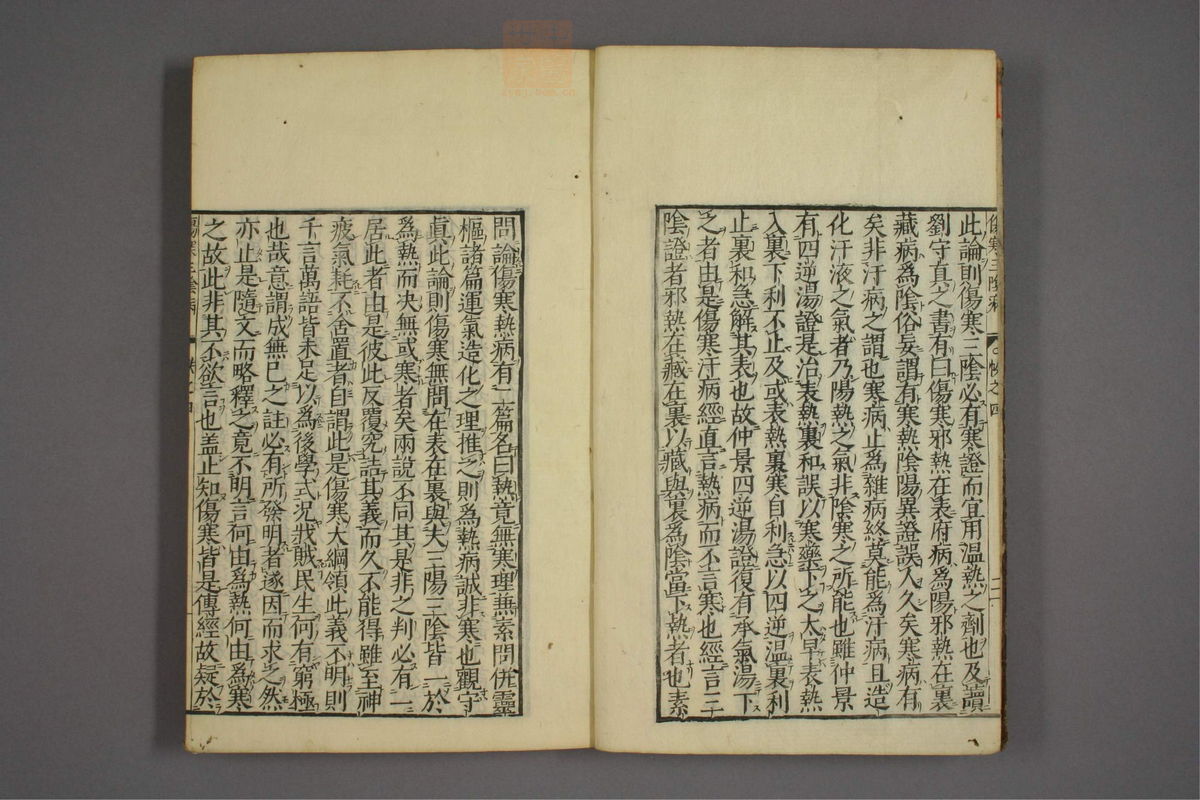 此論則傷寒三陰必有寒證而宜用溫熱之劑也及讀
劉守真之書有曰傷寒邪熱在表府病爲陽邪熱在裏
藏病爲陰俗妄謂有寒熱陰陽異證誤人久矣寒病有
矣非汗病之謂也寒病止爲雜病終莫能爲汗病且造
化汗液之氣者乃陽熱之氣非陰寒之所能也雖仲景
有四逆湯證是治表熱裏和誤以寒藥下之太早表熱
入裏下利不止及或表熱裏寒自利急以四逆溫裏利
止裏和急解其表也故仲景四逆湯證復有承氣湯下
之者由是傷寒汗病經直言熱病而不言寒也經言三
陰證者邪熱在藏在裏以藏與裏爲陰當下熱者也素
問論傷寒熱病有二篇名曰熱竟無寒理兼素問併靈
樞諸篇運氣造化之理推之則爲熱病誠非寒也觀守
真此論則傷寒無問在表在裏與夫三陽三陰皆一於
爲熱而决無或寒者矣兩說不同其是非之判必有一
居此者由是彼此反覆究詰其義而久不能得雖至神
疲氣耗不舍置者自謂此是傷寒大綱領此義不明則
千言萬語皆未足以爲後學式况戕賊民生何有窮極
也哉意謂成無已之註必有所發明者遂因而求之然
亦止是隨文而略釋之竟不明言何由爲熱何由爲寒
之故此非其不欲言也盖止知傷寒皆是傳經故疑於